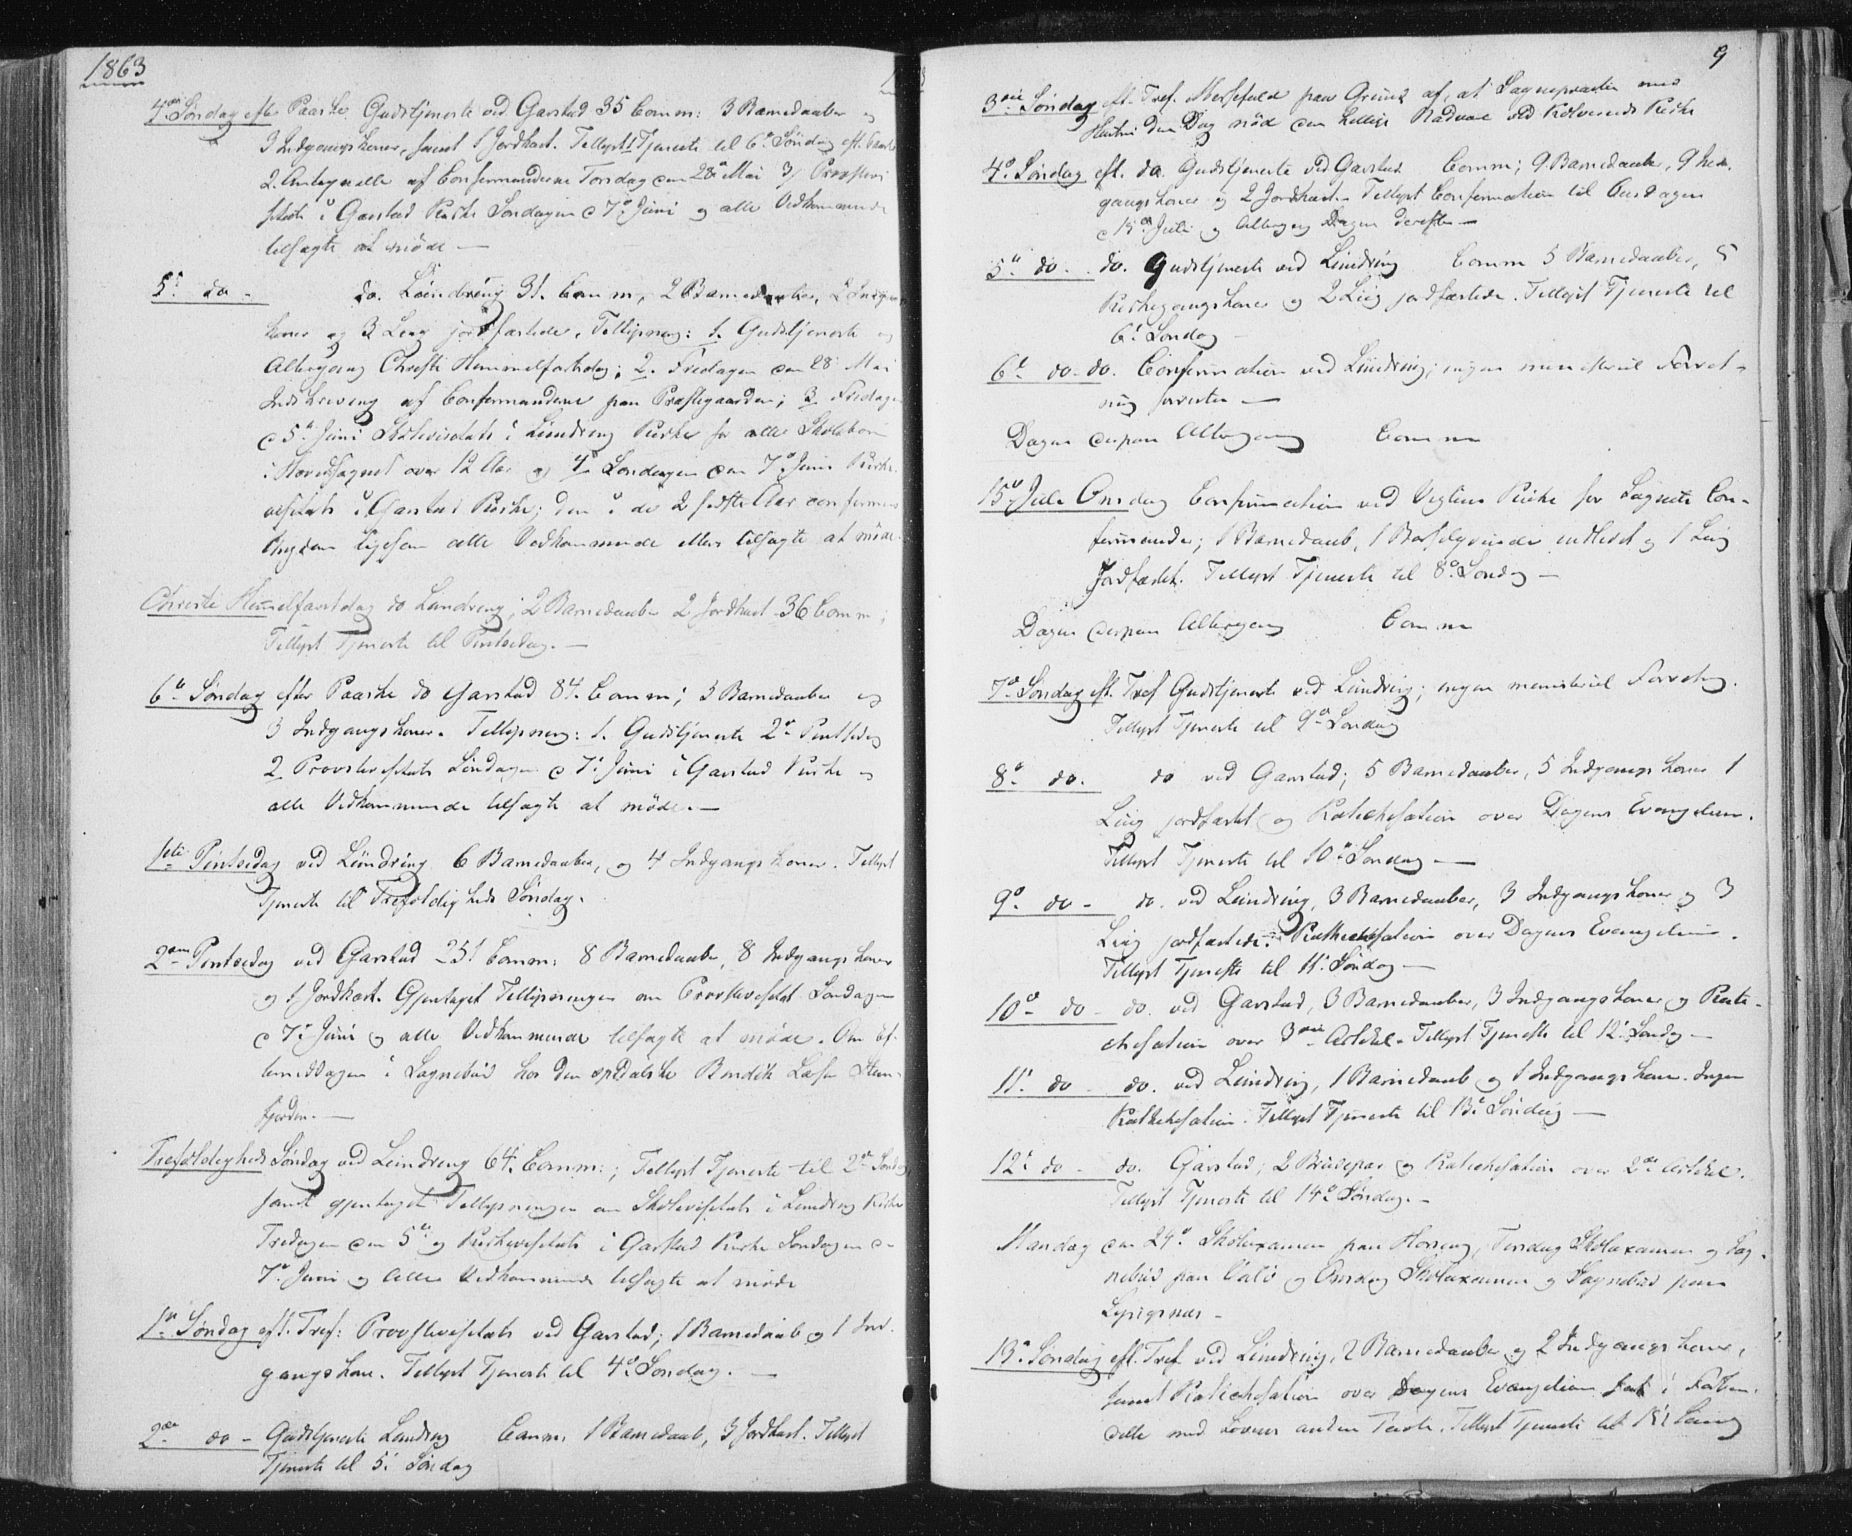 1863
4de Søndag efter Paaske Gudstjeneste ved Garstad 35 Comm: 3 Barnedaaber og
3 Indgangskoner, samt 1 Jordkast. Tillyst 1 Tjeneste til 6te Søndag eft. Paaske
2. Antagnelse af Confirmanderne Torsdag den 28de Mai 3/ Provstevi
sitats i Garstad Kirke Søndagen d 7de Juni og alle Vedkommende
tilsagte at møde —
5te do - do. Leindring 31. Comm, 2 Barnedaaber, 2 Indgangs
koner og 3 Liig jordfæstede. Tillysning: 1. Gudstjeneste og
Altergang Christi Himmelfartsdag; 2. Fredagen den 28 Mai
Indskrivning af Confirmanderne paa Præstegaarden; 3 Fredagen
d 5te Juni Skolevisitats i Leindring Kirke for alle Skolebørn
i Hovedsognet over 12 Aar og 4. Søndagen den 7de Juni Kirke
visitats i Garstad Kirke; den i de 2 sidste Aar confirmerede
Ungdom ligesom alle Vedkommende ellers tilsagte at møde.
Christi Himmelfartsdag do Leindring; 2 Barnedaaber 2 Jordkast 36 Comm;
Tillyst Tjeneste til Pintsedag. —
6te Søndag efter Paaske do Garstad 84. Comm; 3 Barnedaaber og
3 Indgangskoner. Tillysning: 1. Gudstjeneste 2den Pintsedag
2 Provstevisitats Søndagen d 7de Juni i Garstad Kirke og
alle Vedkommende tilsagte at møde. —
1ste Pintsedag ved Leindring 6 Barnedaaber, og 4 Indgangskoner. Tillyst
Tjeneste til Trefoldigheds Søndag.
2den Pintsedag ved Garstad 251 Comm: 8 Barnedaaber, 8 Indgangskoner
og 1 Jordkast. Gjentaget Tillysningen om Provstevisitats Søndagen
d 7de Juni og alle Vedkommende tilsagte at møde. Om Ef-
termiddagen i Sognebud hos den spedalske Bendik
fjorden. —
Trefoldigheds Søndag ved Leindring 64. Comm:; Tillyst Tjeneste til 2den Søndag
samt gjentaget Tillysningen om Skolevisitats i Leindring Kirke
Fredagen den 5te og Kirkevisitats i Garstad Kirke Søndagen d-
7de Juni og alle Vedkommende tilsagte at møde
1ste Søndag eft. Tref: Provstevisitats ved Garstad; 1 Barnedaab og 1 Ind-
gangskone. Tillyst Tjeneste til 4de Søndag. —
2den do - Gudstjeneste Leindring Comm: 1 Barnedaab, 3 Jordkast. Tillyst
Tjeneste til 5te Søndag
9
3die Søndag eft. Tref. Messefald paa Grund af, at Sognepræsten med
Hustru den Dag nød den hellige Nadvere ved Kolvereids Kirke
4de Søndag eft. do. Gudstjeneste ved Garstad Comm; 9 Barnedaaber, 9 Ind-
gangskoner og 2 Jordkast. Tillyst Confirmation til Onsdagen
d 15de Juli og Altergang Dagen derefter —
5te do - do. Gudstjeneste ved Leindring Comm 5 Barnedaaber, 5
Kirkegangskoner og 2 Liig jordfæstede. Tillyst Tjeneste til
6te Søndag
6te do - do. Confirmation ved Leindring; ingen ministeriel Forret-
ning forresten —
Dagen derpaa Altergang Comm
15de Juli Onsdag Confirmation ved Vegtens Kirke for Sognets Con-
firmander; 1 Barnedaab, 1 Barselqvinde indledet og 1 Liig
Jordfæstet. Tillyst Tjeneste til 8de Søndag —
Dagen derpaa Altergang Comm
7de Søndag eft. Tref Gudstjeneste ved Leindring; ingen ministeriel Forretng.
Tillyst Tjeneste til 9de Søndag
8de do. do ved Garstad; 5 Barnedaaber, 5 Indgangskoner 1
Liig jordfæstet og Katechisation over Dagens Evangelium.
Tillyst Tjeneste til 10de Søndag —
9de do - do. ved Leindring, 3 Barnedaaber, 3 Indgangskoner og 3
Liig jordfæstede. Katechisation over Dagens Evangelium.
Tillyst Tjeneste til 11te Søndag —
10de do - do. ved Garstad, 3 Barnedaaber, 3 Indgangskoner og Kate-
chisation over 3die Artikel. Tillyst Tjeneste til 12te Søndag —
11te do - do. ved Leindring, 1 Barnedaab og 1 Indgangskone. Ingen
Katechisation. Tillyst Tjeneste til 13de Søndag —
12te do - do. Garstad; 2 Brudepar og Katechisation over 2den Artikel.
Tillyst Tjeneste til 14de Søndag. —
Mandag den 24de Skolexamen paa Horseng, Tirsdag Skolexamen og Sog-
nebud paa og Onsdag Skolexamen og Sognebud paa
13de Søndag eft. Tref ved Leindring, 2 Barnedaaber og 2 Indgangskoner,
samt Katechisation over Dagens Evangelium
med Lovens anden Tavle. Tillyst Tjeneste til 15de Søndag